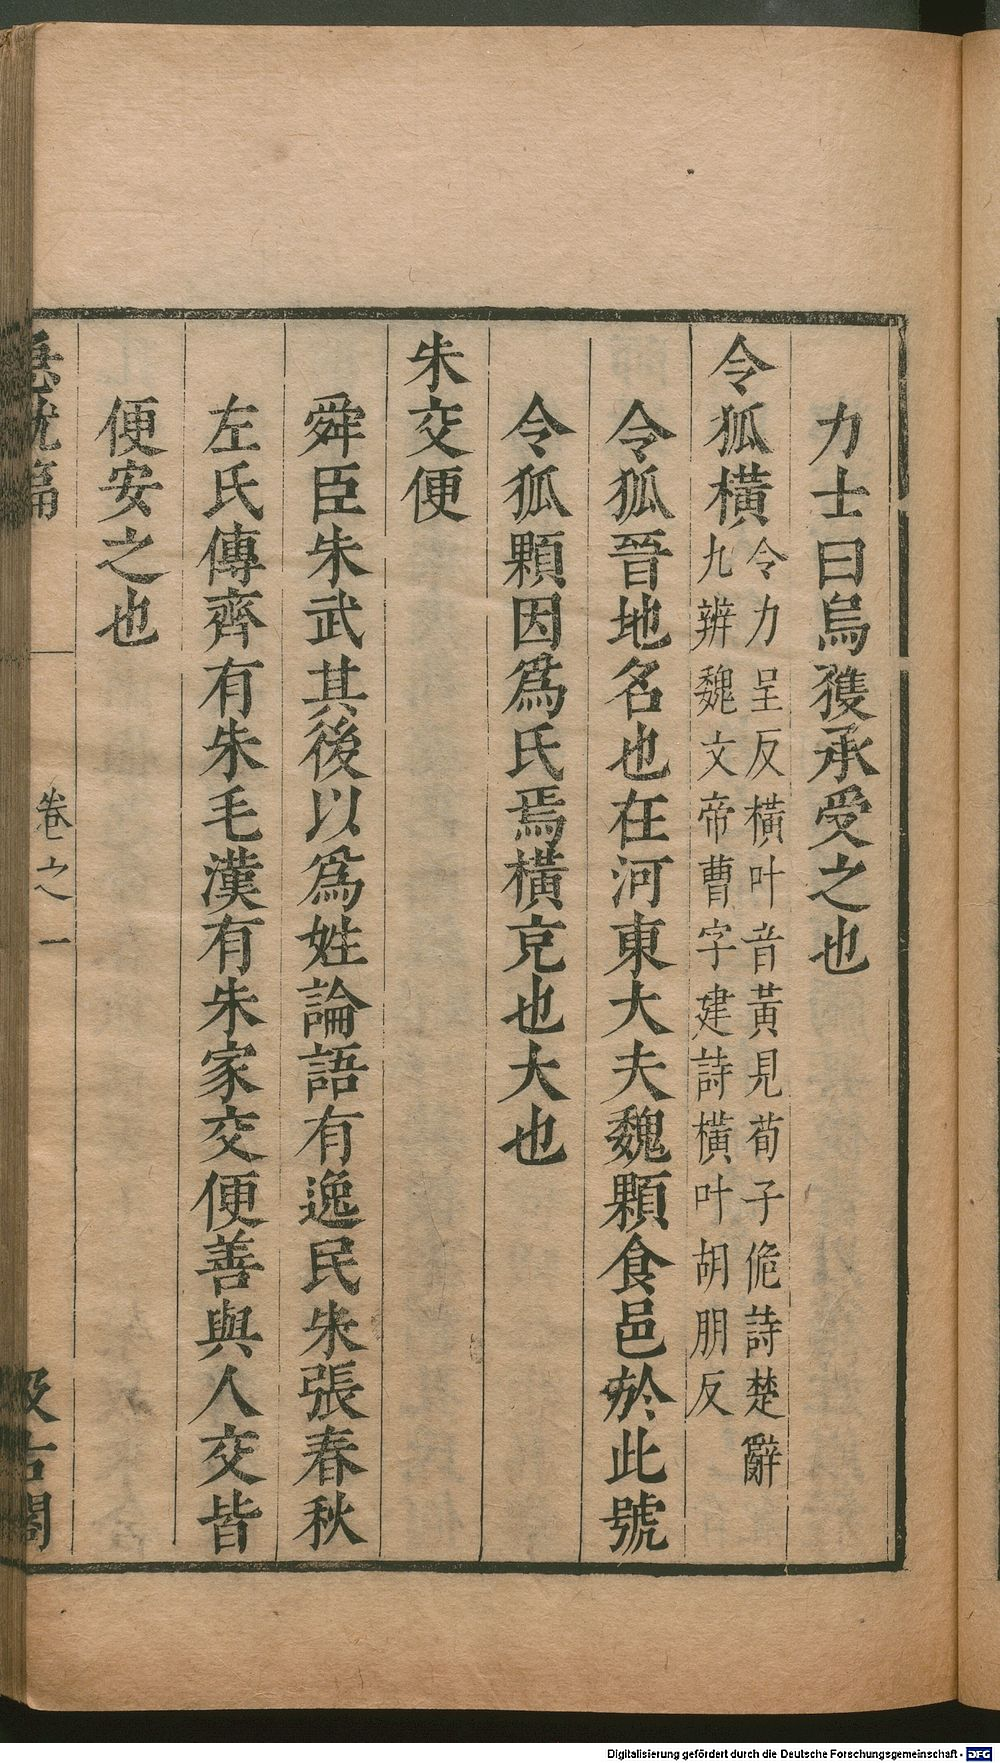 力士曰烏獲承受之也
令狐橫
令力呈反橫叶音黃見荀子佹詩楚辭
九辨魏文帝曹字建詩橫叶胡朋反
令狐晉地名也在河東大夫魏顆食邑於此號
令狐顆因爲氏焉橫充也大也
朱交便
舜臣朱武其後以爲姓論語有逸民朱張春秋
左氏傳齊有朱毛漢有朱家交便善與人交皆
便安之也
急就篇
卷之一
汲古閣
Digitalisierung gefördert durch die Deutsche Forschungsgemeinschaft - DFG